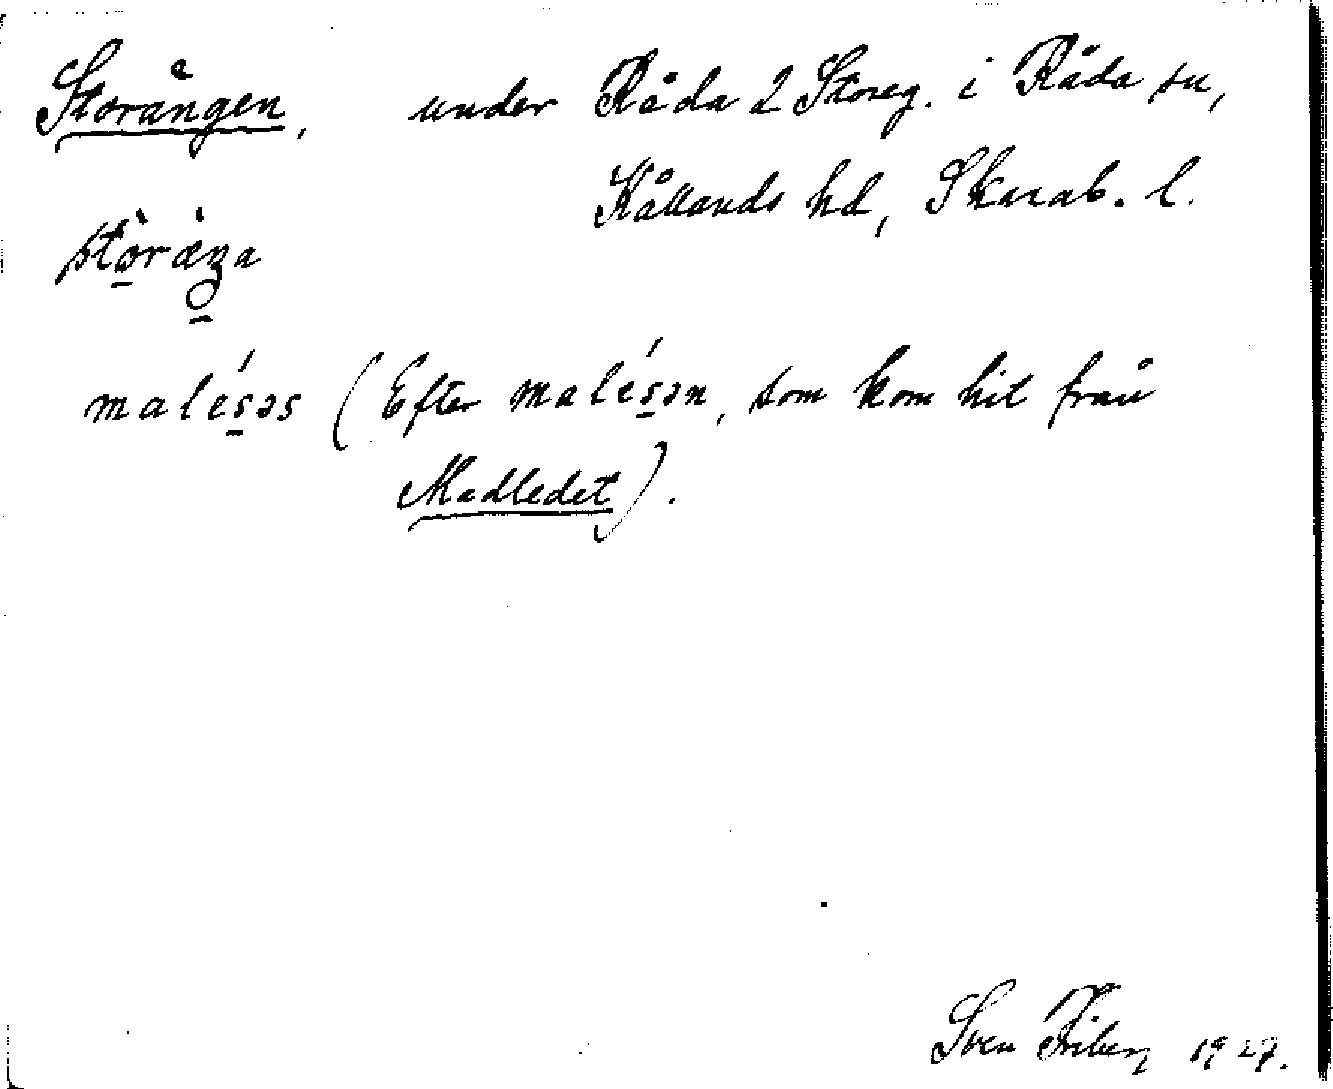 Storängen, under Råda 2 Storeg. i Råda sn,
Kållands hd, Skarab. l.
stòräŋa
malésəs (Efter malésən, som kom hit från
Madledet).
Sven Friberg 1927.